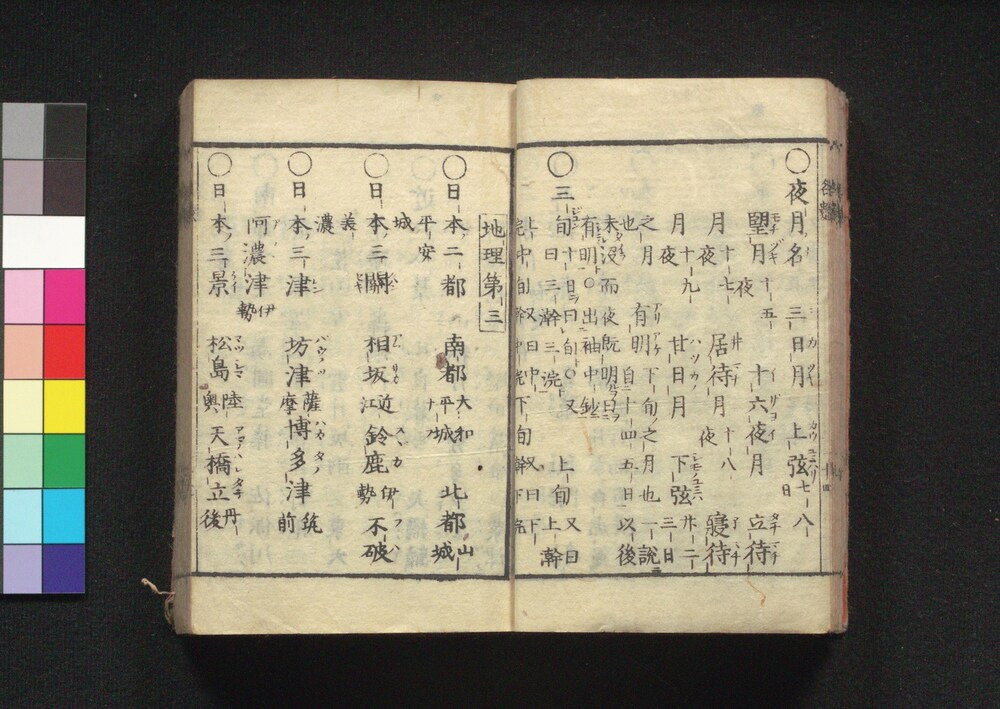 〇夜月名 三日月 上弦七八日
望月十五夜 十六夜月 立待
月十七夜 居待月十八夜 寝待
月十九夜 廿日月 下弦廿二三日
之月 有明下旬之月也一説
也 有明自二十四五日以後
未没而夜既明曰
有明〇出袖中鈔
〇三旬十日曰旬〇又 上旬又曰上幹
旬曰三幹三浣
上浣中旬又曰中幹中浣下旬又曰下幹下浣
地理第三
〇日本二都 南都大和平城 北都山城
平安城
〇日本三關 相坂近江 鈴鹿伊勢 不破
美濃
〇日本三津 坊津薩摩 博多津筑前
阿濃津伊勢
〇日本三景 松島陸奥 天橋立丹後